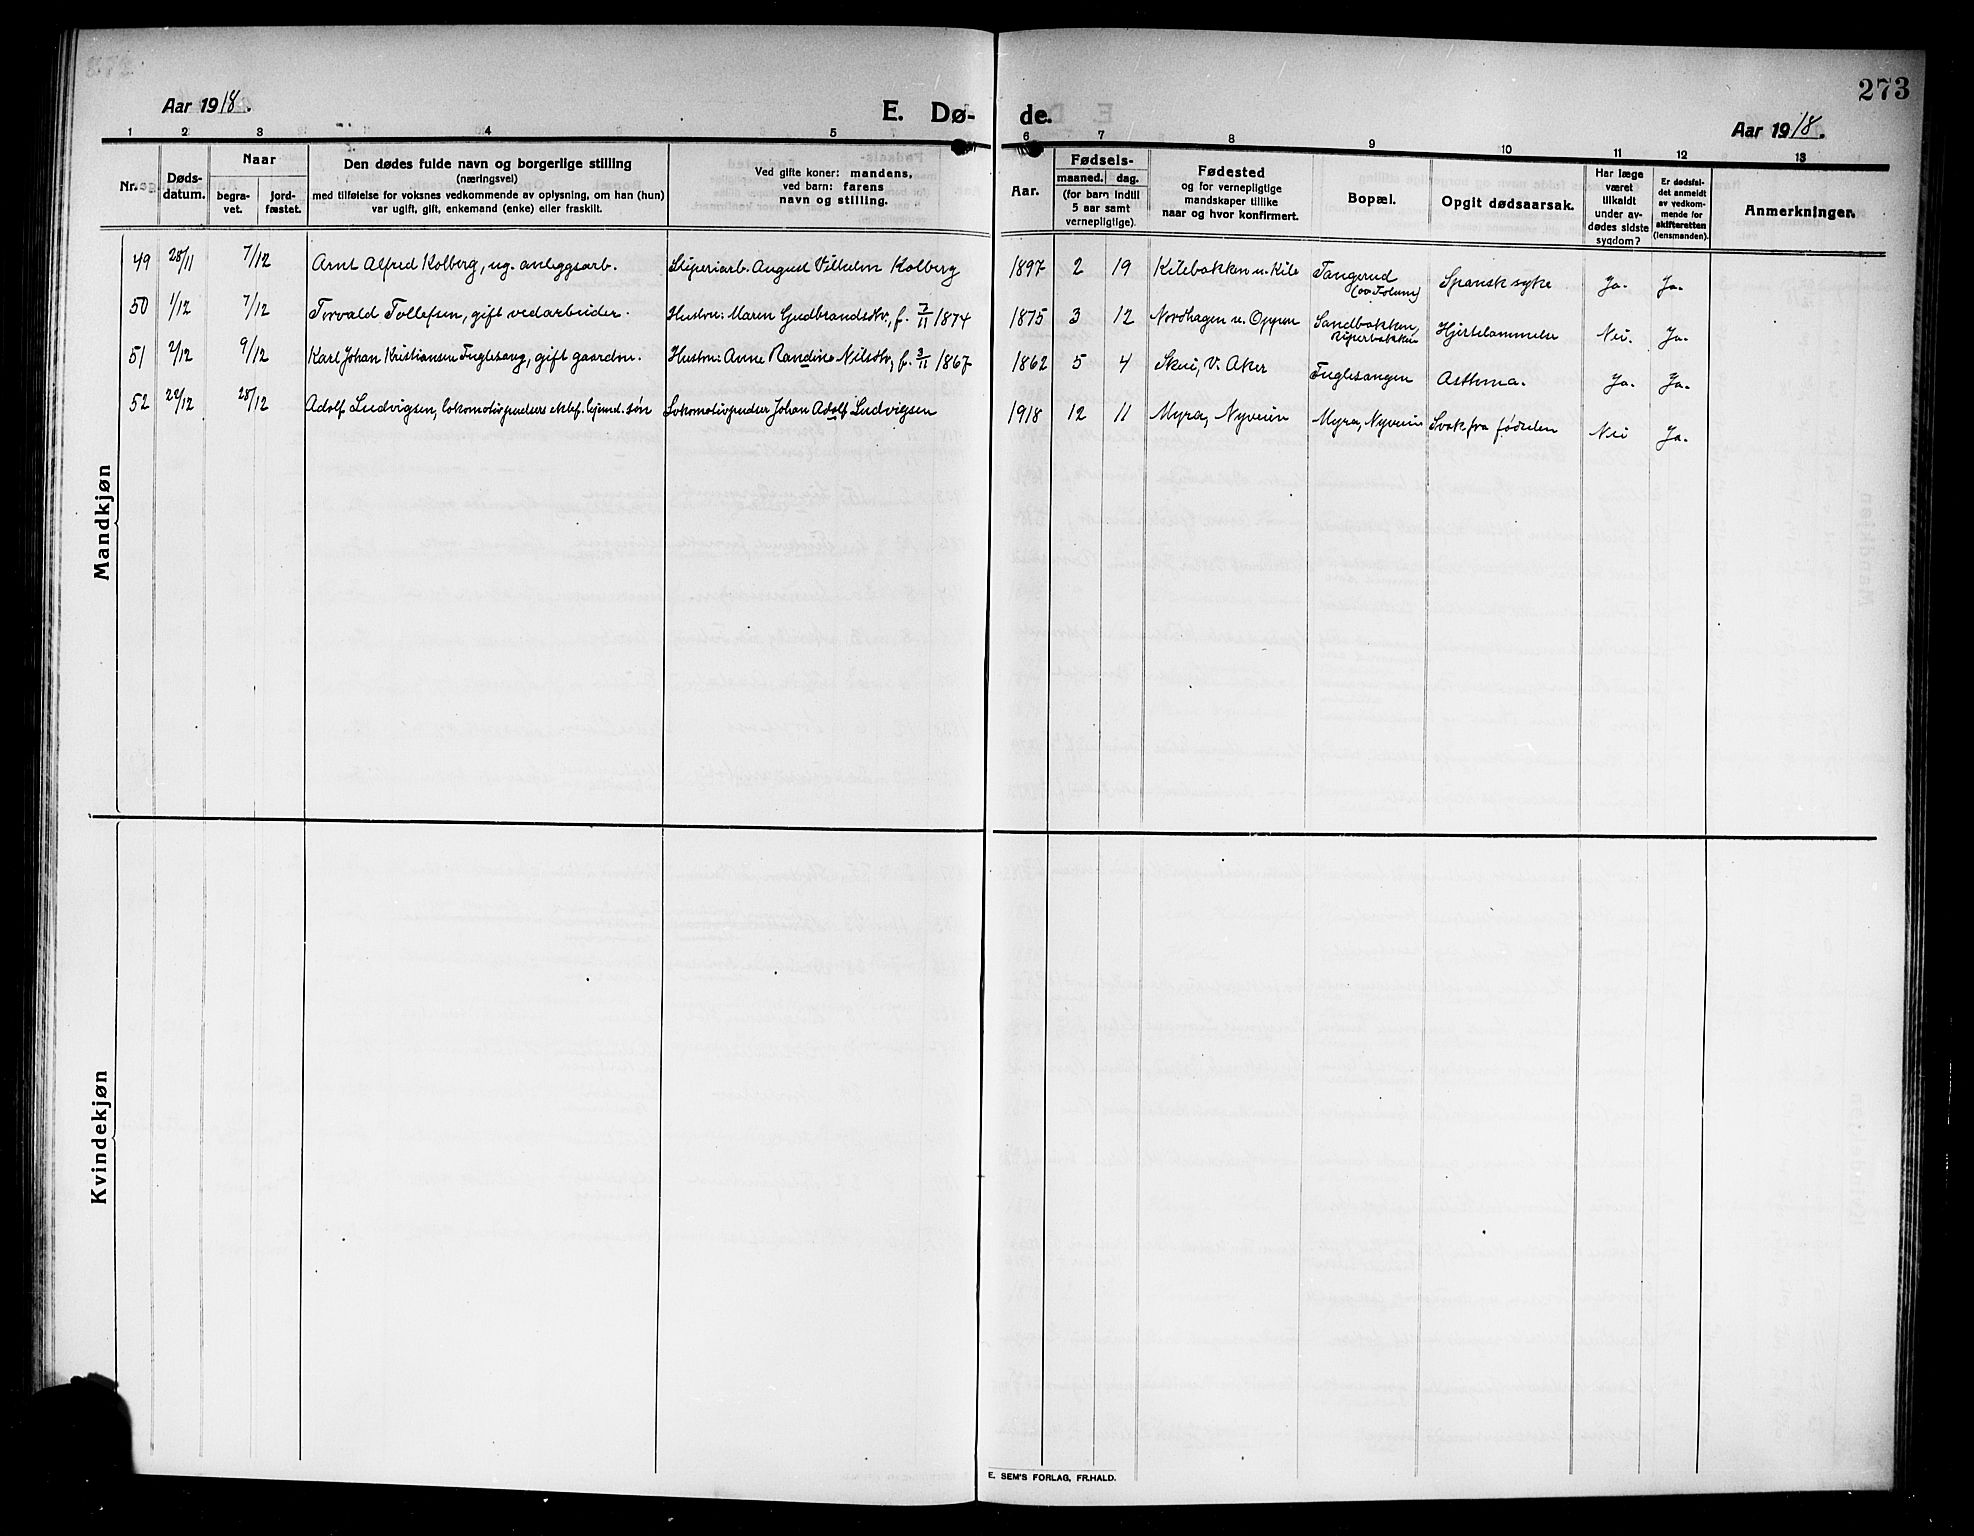 273
Aar 1918.
E. Dø-
de.
Aar 1918.
1 2 3 4 5 6 7 8 9 10 11 12 13
Nr.
Døds-
datum.
Naar
begra-
vet.
jord-
fæstet.
Den dødes fulde navn og borgerlige stilling
(næringsvei)
med tilføielse for voksnes vedkommende av oplysning, om han (hun)
var ugift, gift, enkemand (enke) eller fraskilt.
Ved gifte koner: mandens,
ved barn: farens
navn og stilling.
Aar.
Fødsels-
maaned. dag.
(for barn indtil
5 aar samt
vernepligtige).
Fødested
og for vernepligtige
mandskaper tillike
naar og hvor konfirmert.
Bopæl.
Opgit dødsaarsak.
Har læge
været
tilkaldt
under av-
dødes sidste
sygdom?
Er dødsfal-
det anmeldt
av vedkom-
mende for
skifteretten
(lensmanden).
Anmerkninger.
Mandkjøn
49 28/11 7/12 Arnt Alfred Kolberg, ug. anleggsarb. Sliperiarb. August Vilhelm Kolberg 1897 2 19 Kilebakken u. Kile Tangerud Spansk syke Ja. Ja.
50 1/12 7/12 Torvald Tollefsen, gift vedarbeider. Hustru: Maren Gudbrandsdtr, f. 7/11 1874 1875 3 12 Nordhagen u. Oppen Sandbakken, Hjertelammelse Nei. Ja.
51 2/12 9/12 Karl Johan Kristiansen Fuglesang, gift gaardbr. Hustru: Anne Randine Nilsdtr, f. 3/11 1867 1862 5 4 Skui, V. Aker Fuglesangen Asthma. Ja. Ja.
52 22/12 28/12 Adolf Ludvigsen, lokomotivpudsers ektef. hjemd. søn Lokomotivpudser Johan Adolf Ludvigsen 1918 12 11 Myra, Nyveien Myra, Nyveien Svak fra fødselen Nei Ja.
Kvindekjøn
E. SEM'S FORLAG, FR.HALD.